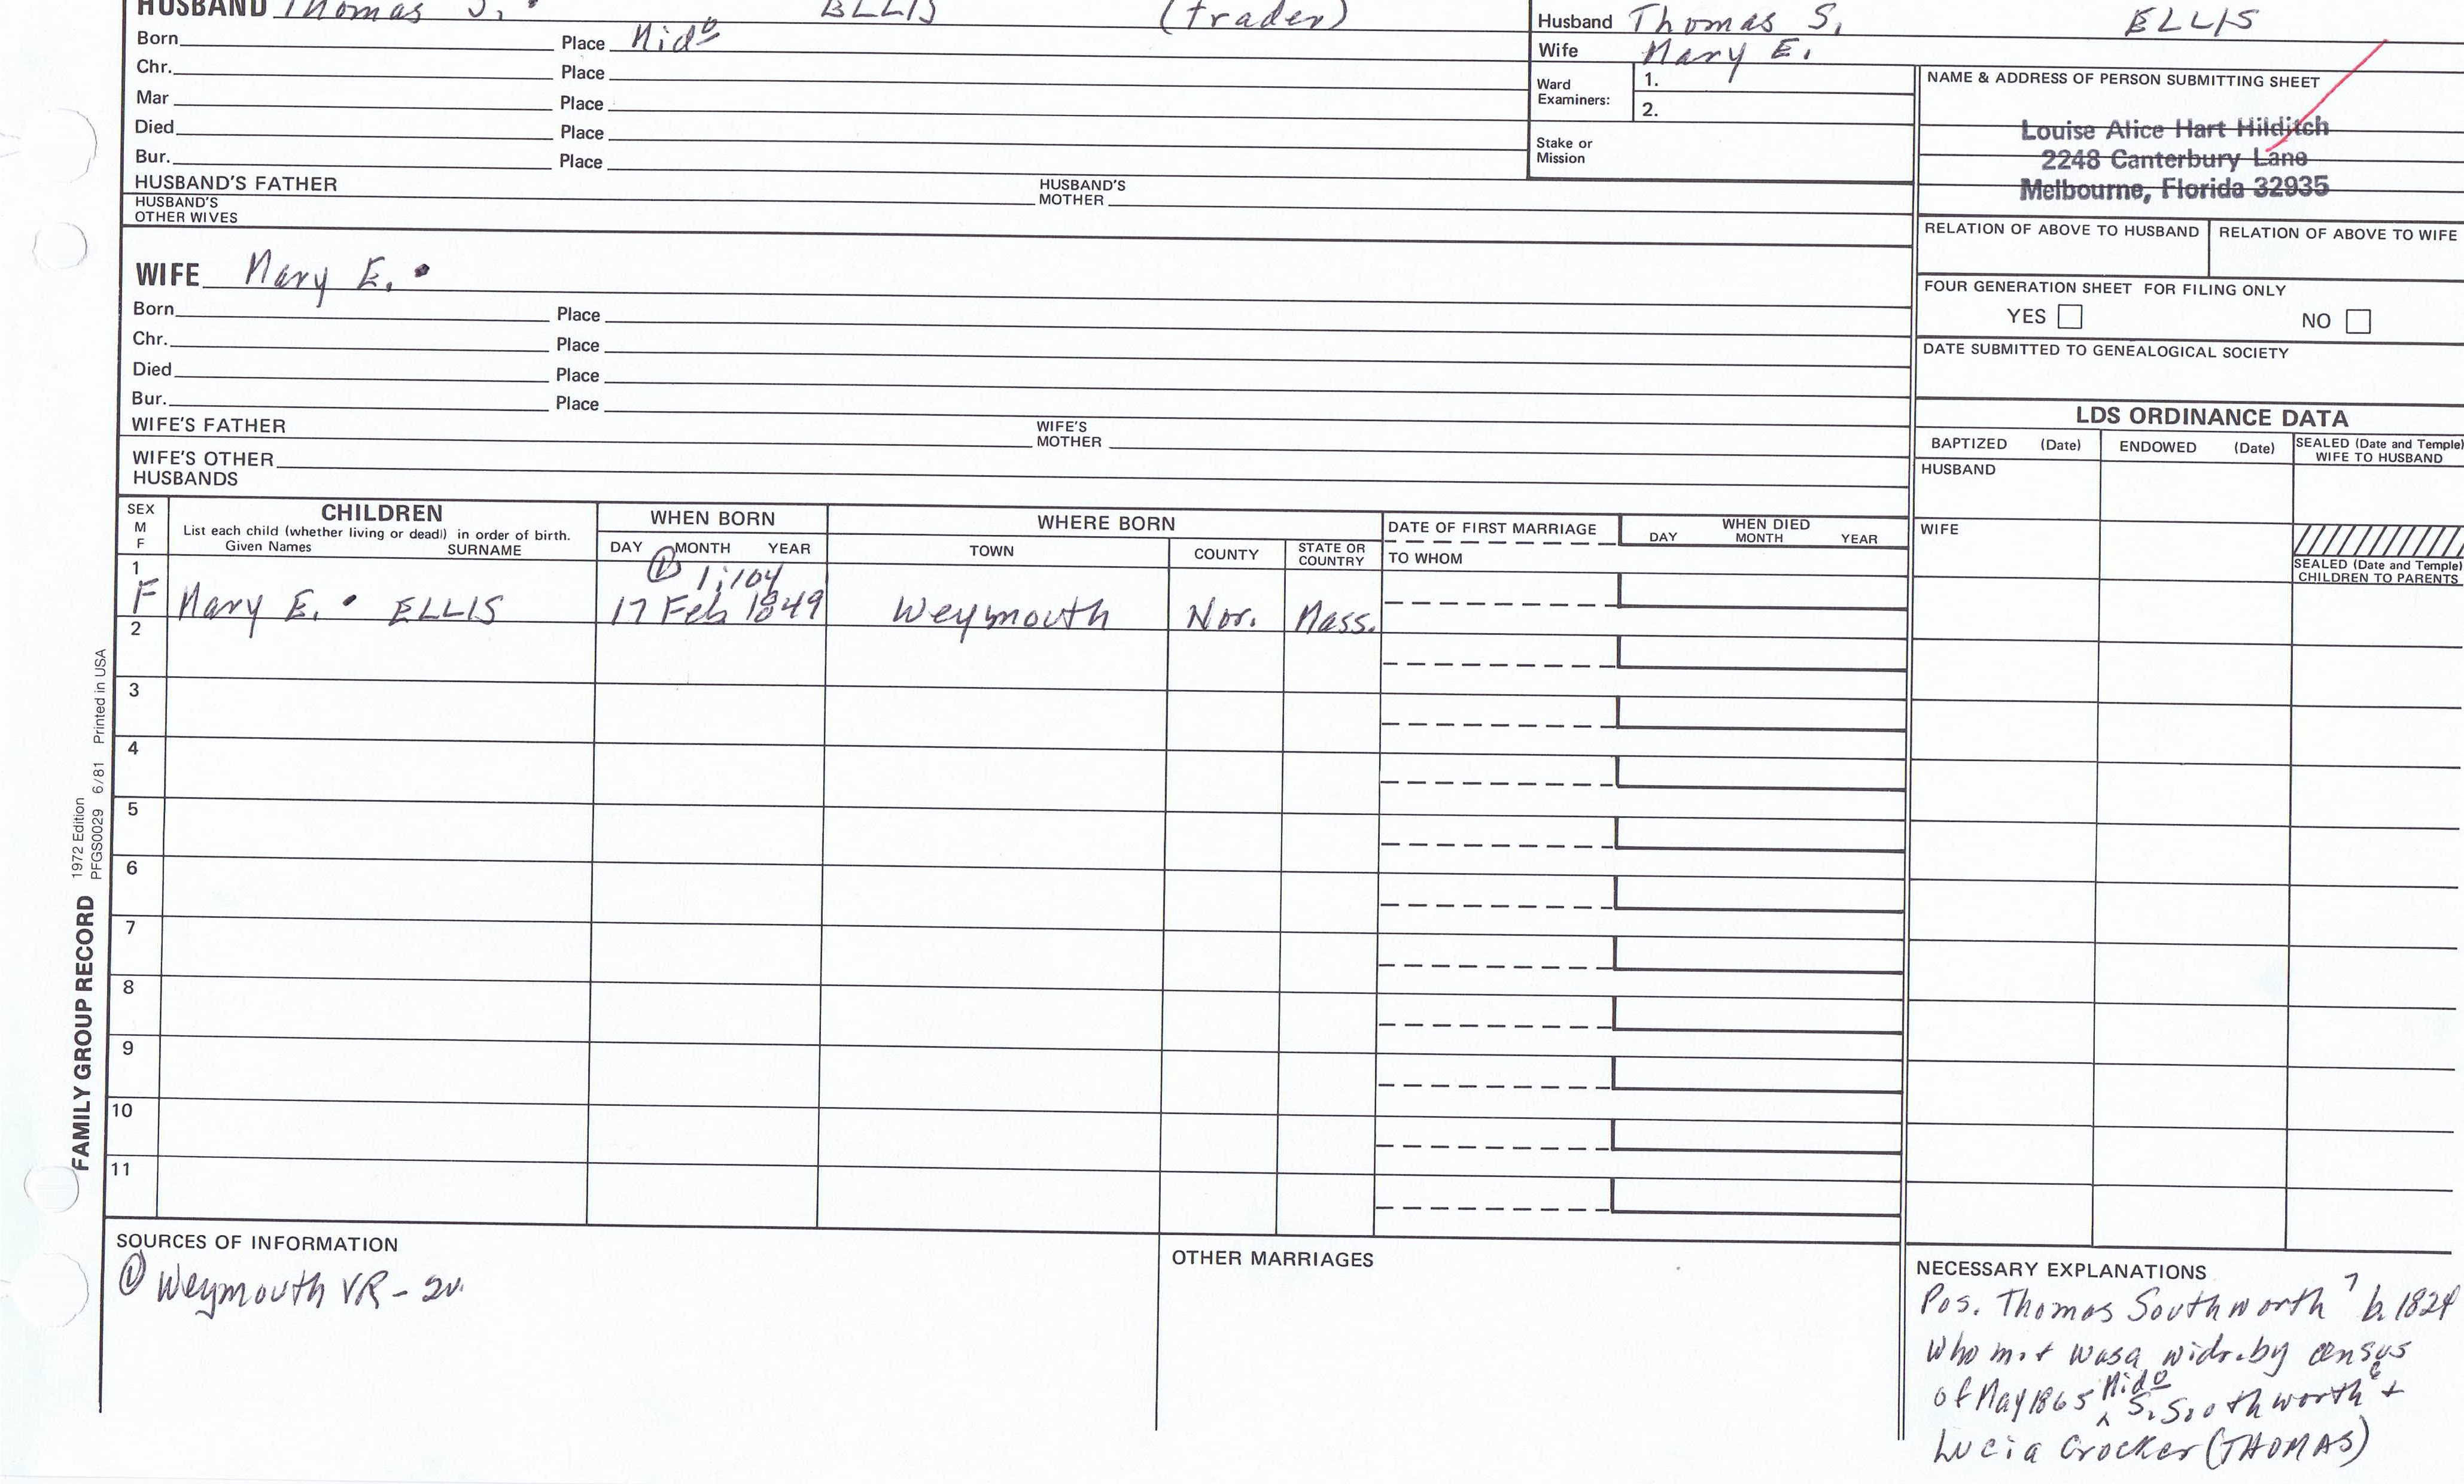 HUSBAND Thomas S. ELLIS (trader)
Born Place Mido
Chr. Place
Mar Place
Died Place
Bur. Place
HUSBAND'S FATHER HUSBAND'S MOTHER
HUSBAND'S OTHER WIVES
Husband Thomas S. ELLIS
Wife Mary E.
Ward Examiners: 1.
2.
Stake or Mission
NAME & ADDRESS OF PERSON SUBMITTING SHEET
Louise Alice Hart Hilditch
2248 Canterbury Lane
Melbourne, Florida 32935
RELATION OF ABOVE TO HUSBAND RELATION OF ABOVE TO WIFE
FOUR GENERATION SHEET FOR FILING ONLY
YES NO
DATE SUBMITTED TO GENEALOGICAL SOCIETY
WIFE Mary E.
Born Place
Chr. Place
Died Place
Bur. Place
WIFE'S FATHER WIFE'S MOTHER
WIFE'S OTHER HUSBANDS
LDS ORDINANCE DATA
BAPTIZED (Date) ENDOWED (Date) SEALED (Date and Temple) WIFE TO HUSBAND
HUSBAND
WIFE
SEALED (Date and Temple) CHILDREN TO PARENTS
SEX M F
CHILDREN
List each child (whether living or dead) in order of birth.
Given Names SURNAME
WHEN BORN
DAY MONTH YEAR
WHERE BORN
TOWN COUNTY STATE OR COUNTRY
DATE OF FIRST MARRIAGE
TO WHOM
WHEN DIED
DAY MONTH YEAR
1 ① 1:104
F Mary E. ELLIS 17 Feb 1849 Weymouth Nor. Mass.
2
3
4
5
6
7
8
9
10
11
FAMILY GROUP RECORD
1972 Edition
PFGS0029 6/81 Printed in USA
SOURCES OF INFORMATION
① Weymouth VR - 2v.
OTHER MARRIAGES
NECESSARY EXPLANATIONS
Pos. Thomas Southworth 7 b. 1824
who m. + was a widr. by census
of May 1865 Mido S. Southworth 6 +
Lucia Crocker (THOMAS)